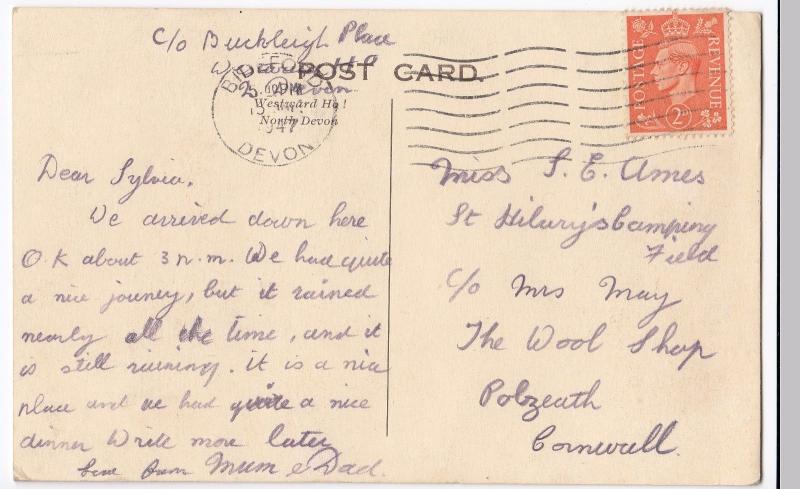 c/o Buckleigh Place
POST CARD.
Devon
Westward Ho!
North Devon
BIDEFORD
1947
DEVON
POSTAGE
REVENUE
2D
Dear Sylvia,
We arrived down here
O.K about 3 p.m. We had quite
a nice jouney, but it rained
nearly all the time, and it
is still raining. It is a nice
place and we had quite a nice
dinner Write more later
love from Mum & Dad.
Miss S. E. Ames
St Hilary's Camping
Field
c/o Mrs May
The Wool Shop
Polzeath
Cornwall.